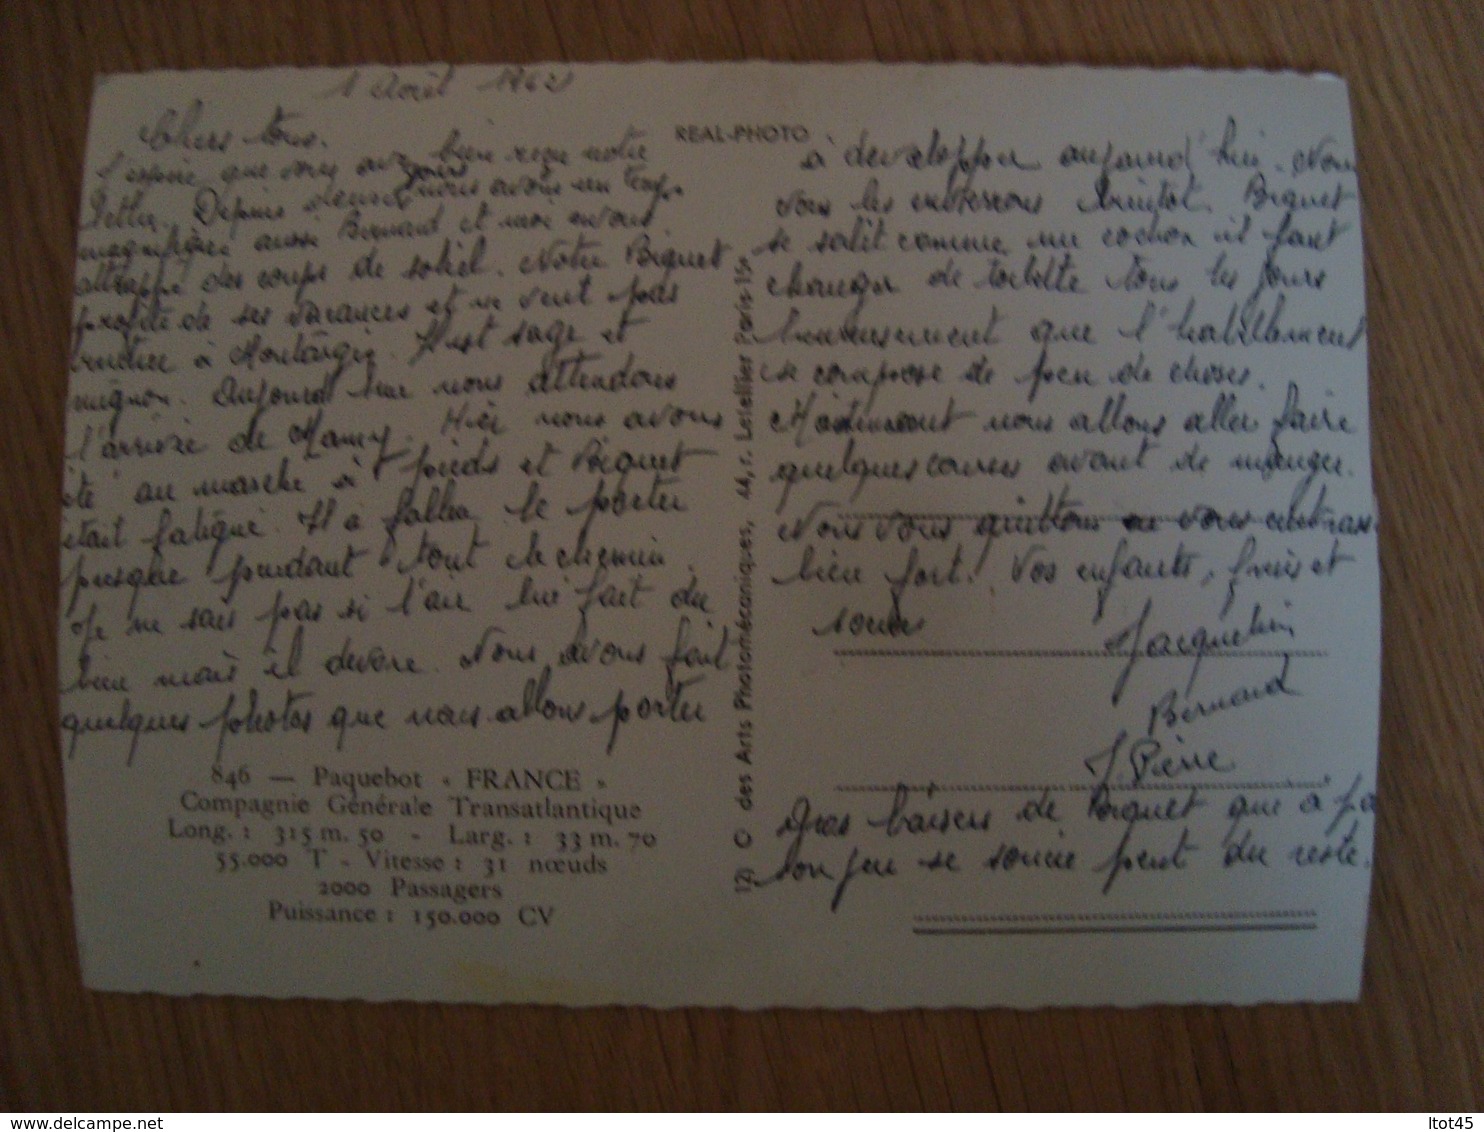 1 Août 1962
Chers tous.
J'espère que vous avez bien reçu notre
lettre. Depuis deux jours nous avons un temps
magnifique aussi Bernard et moi avons
attrappé des coups de soleil. Notre Biquet
profite de ses vacances et ne veut pas
rentrer à Montargis. Il est sage et
mignon. Aujourd'hui nous attendons
l'arrivée de Mamy. Hier nous avons
été au marché à pieds et Biquet
était fatigué. Il a fallu le porter
presque pendant tout le chemin.
Je ne sais pas si l'air lui fait du
bien mais il dévore. Nous avons fait
quelques photos que nous allons porter
846 — Paquebot « FRANCE »
Compagnie Générale Transatlantique
Long. : 315 m. 50 - Larg. : 33 m. 70
55.000 T - Vitesse : 31 nœuds
2000 Passagers
Puissance : 150.000 CV
REAL-PHOTO
des Arts Photomécaniques, 44, r. Letellier Paris-15e
à developper aujourd'hui. Nous
vous les enverrons bientot. Biquet
se salit comme un cochon il faut
changer de toilette tous les jours
heureusement que l'habillement
se compose de peu de choses.
Maintenant nous allons aller faire
quelques courses avant de manger.
Nous vous quittons en vous embrass
bien fort. Vos enfants, frères et
soeurs
Jacqueline
Bernard
J. Pierre
Gros baisers de Biquet que a fa
son jeu se soucie peut du reste.
ltot45